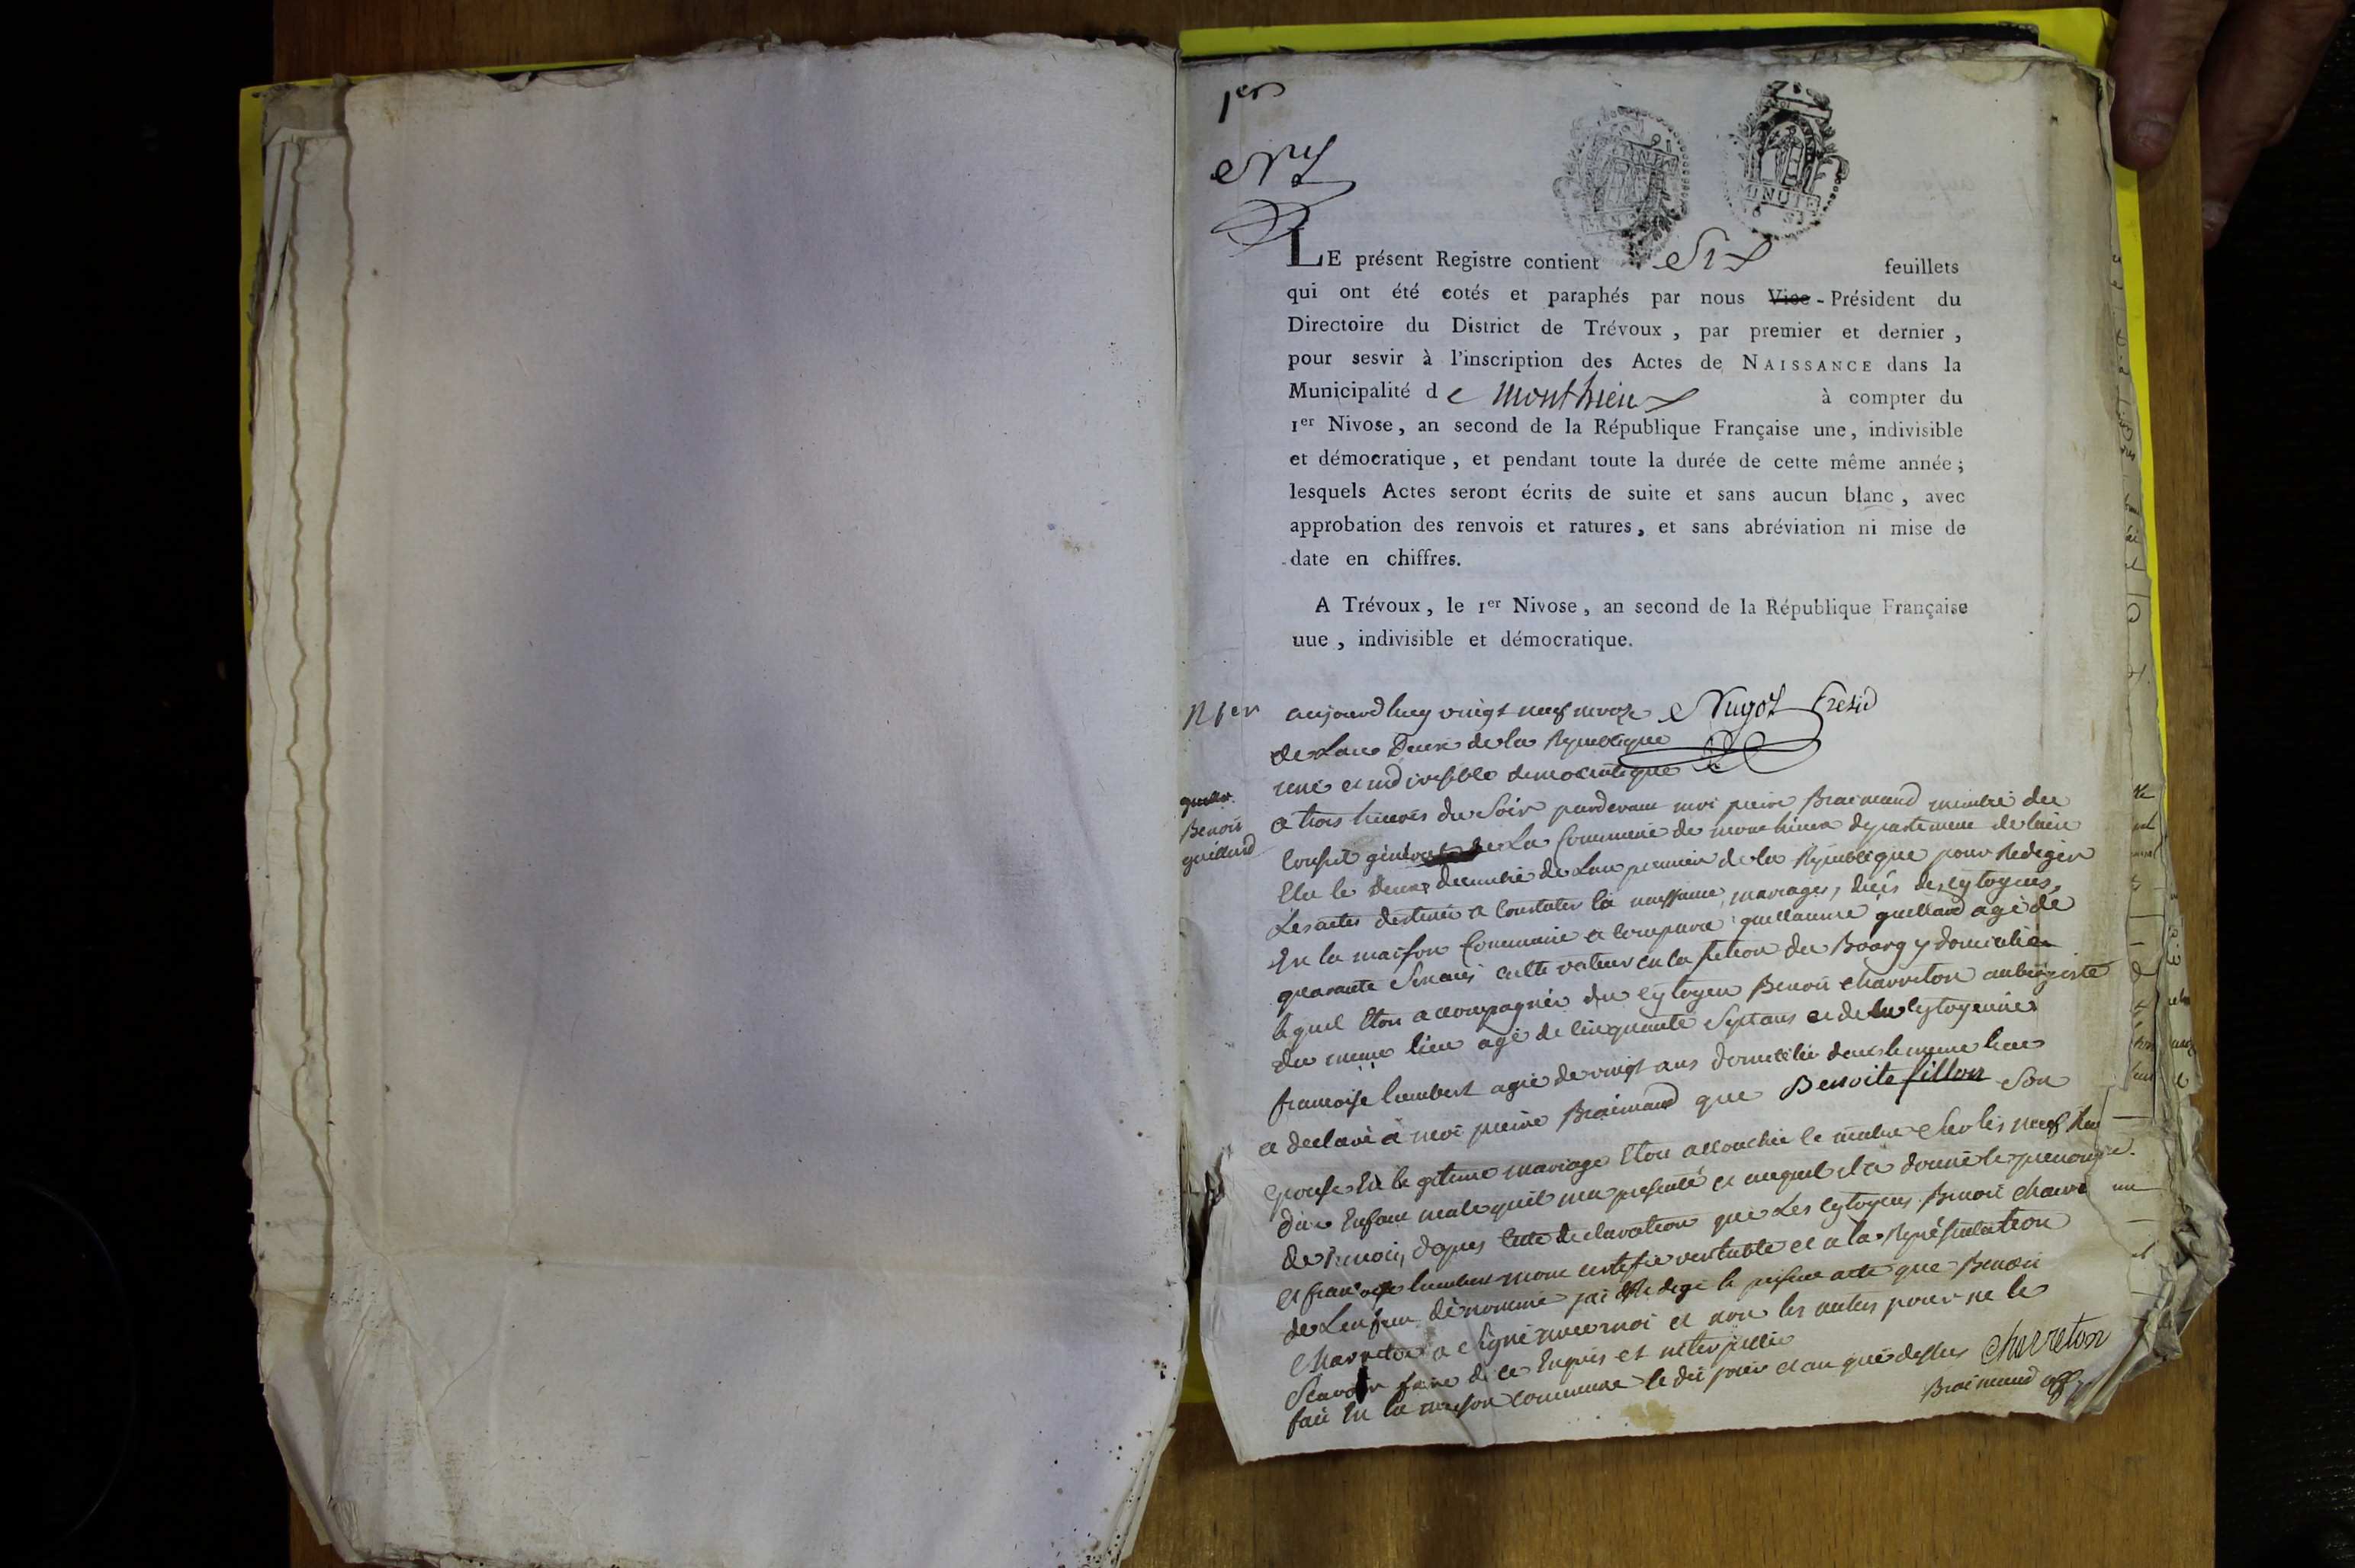 1er
LE présent Registre contient Six feuillets
qui ont été cotés et paraphés par nous Vice-Président du
Directoire du District de Trévoux, par premier et dernier,
pour sesvir à l'inscription des Actes de NAISSANCE dans la
Municipalité de monthieux à compter du
1er Nivose, an second de la République Française une, indivisible
et démocratique, et pendant toute la durée de cette même année;
lesquels Actes seront écrits de suite et sans aucun blanc, avec
approbation des renvois et ratures, et sans abréviation ni mise de
date en chiffres.
A Trévoux, le 1er Nivose, an second de la République Française
uue, indivisible et démocratique.
N 1er
aujourdhuy vingt neuf nivoze
de Lan Deux de la Republique
une et indivisible democratique
Benoit
guillard
a trois heures du Soir pardevant moi pierre Braimand membre du
Conseil général de La Commune de departement de lain
Elu le decembre de Lan premier de la Republique pour Rediger
Les actes destinés a Constater la naissance, mariages, décés des cytoyens,
En la maison Commune a comparu guillaume guillard agé de
quarante Six ans cultivateur en la section du Bourg y domicilié
le quel Etoit accompagnée du cytoyen Benoit Charreton aubergiste
du même lieu agé de cinquante Sept ans et de la cytoyenne
francoise lambert agée de vingt ans domicilié dans le meme lieu
a declaré a moi pierre Braimand que Benoite fillon Son
Epouse En legitime mariage Etoit accouchée le
Enfant male quil ma presenté et auquel il a donné le prenom
de Benoit, dapres cette declaration que Les cytoyens Benoit
et francoise lambert mont certifié veritable et a la Représentation
de Lenfant dénommé jai Redigé le présent acte que Benoit
Charreton a Signé avec moi et non les autres pour ne le
Scavoir faire de ce Enquis et interpellé
fait En la maison commune le dit jour et an que dessus Charreton
Braimand off